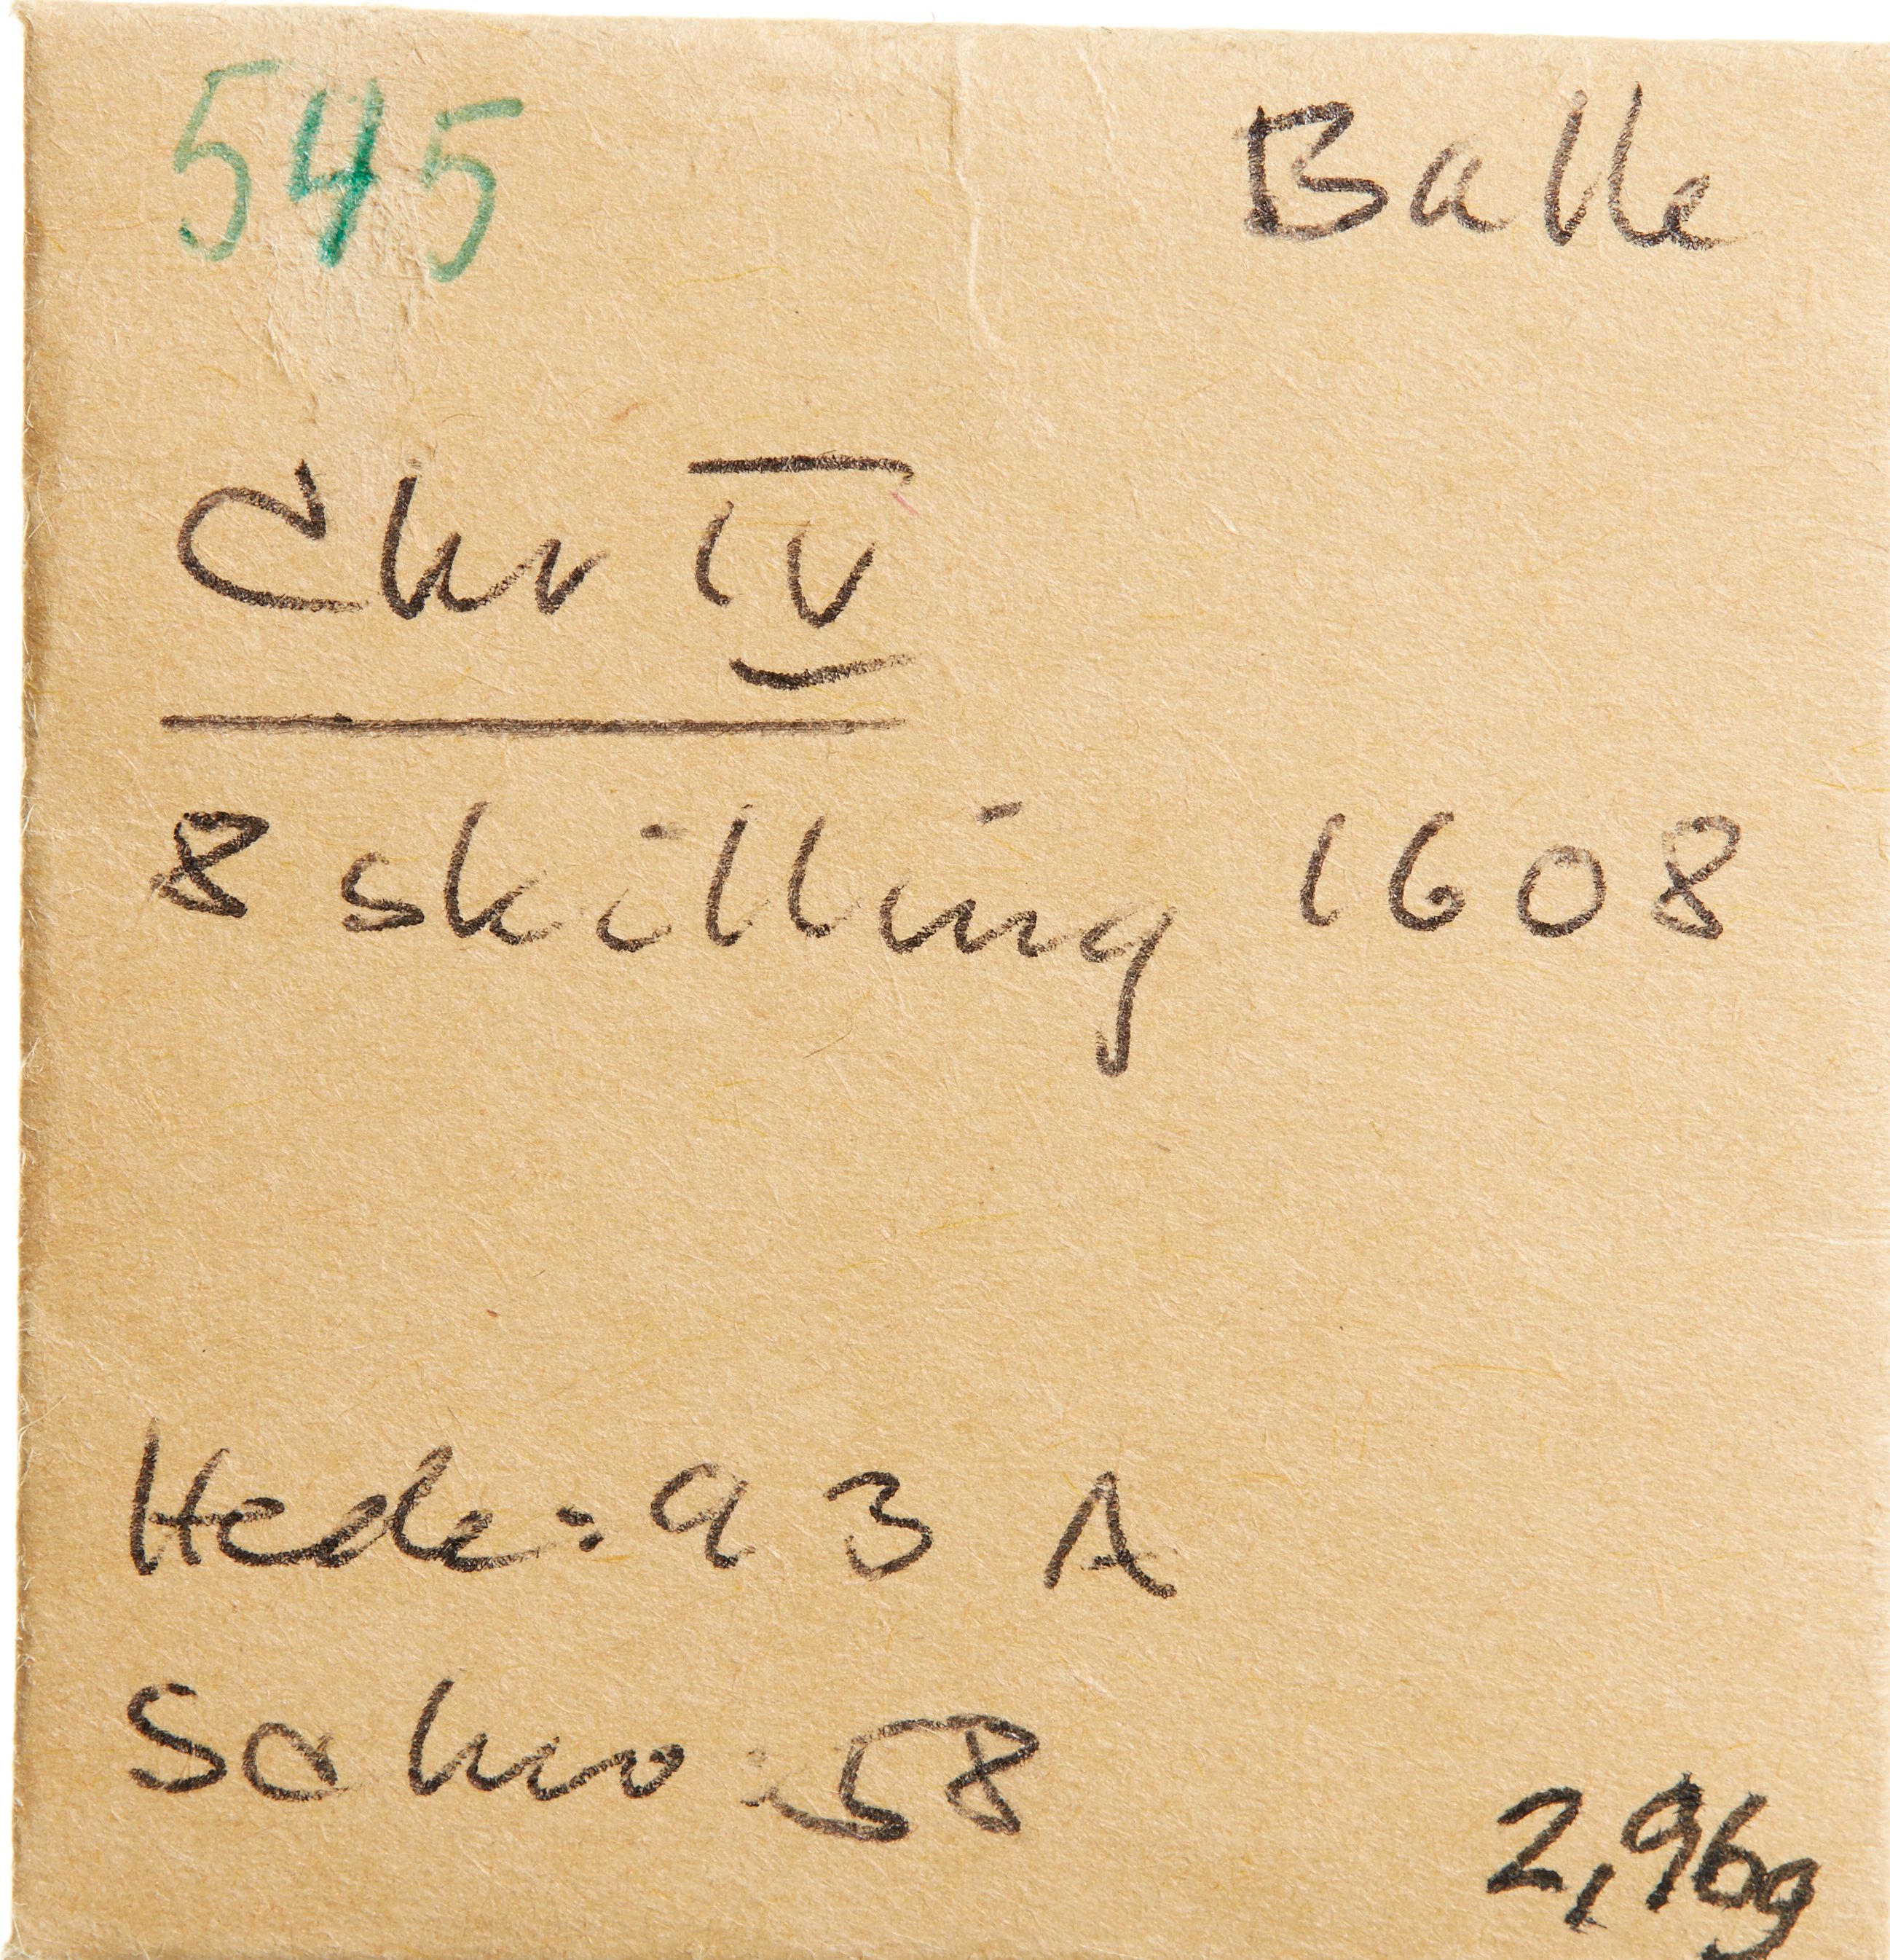 545 Balle
Chr IV
8 skilling 1608
Hede: 93 A
Schou: 58
2,96g